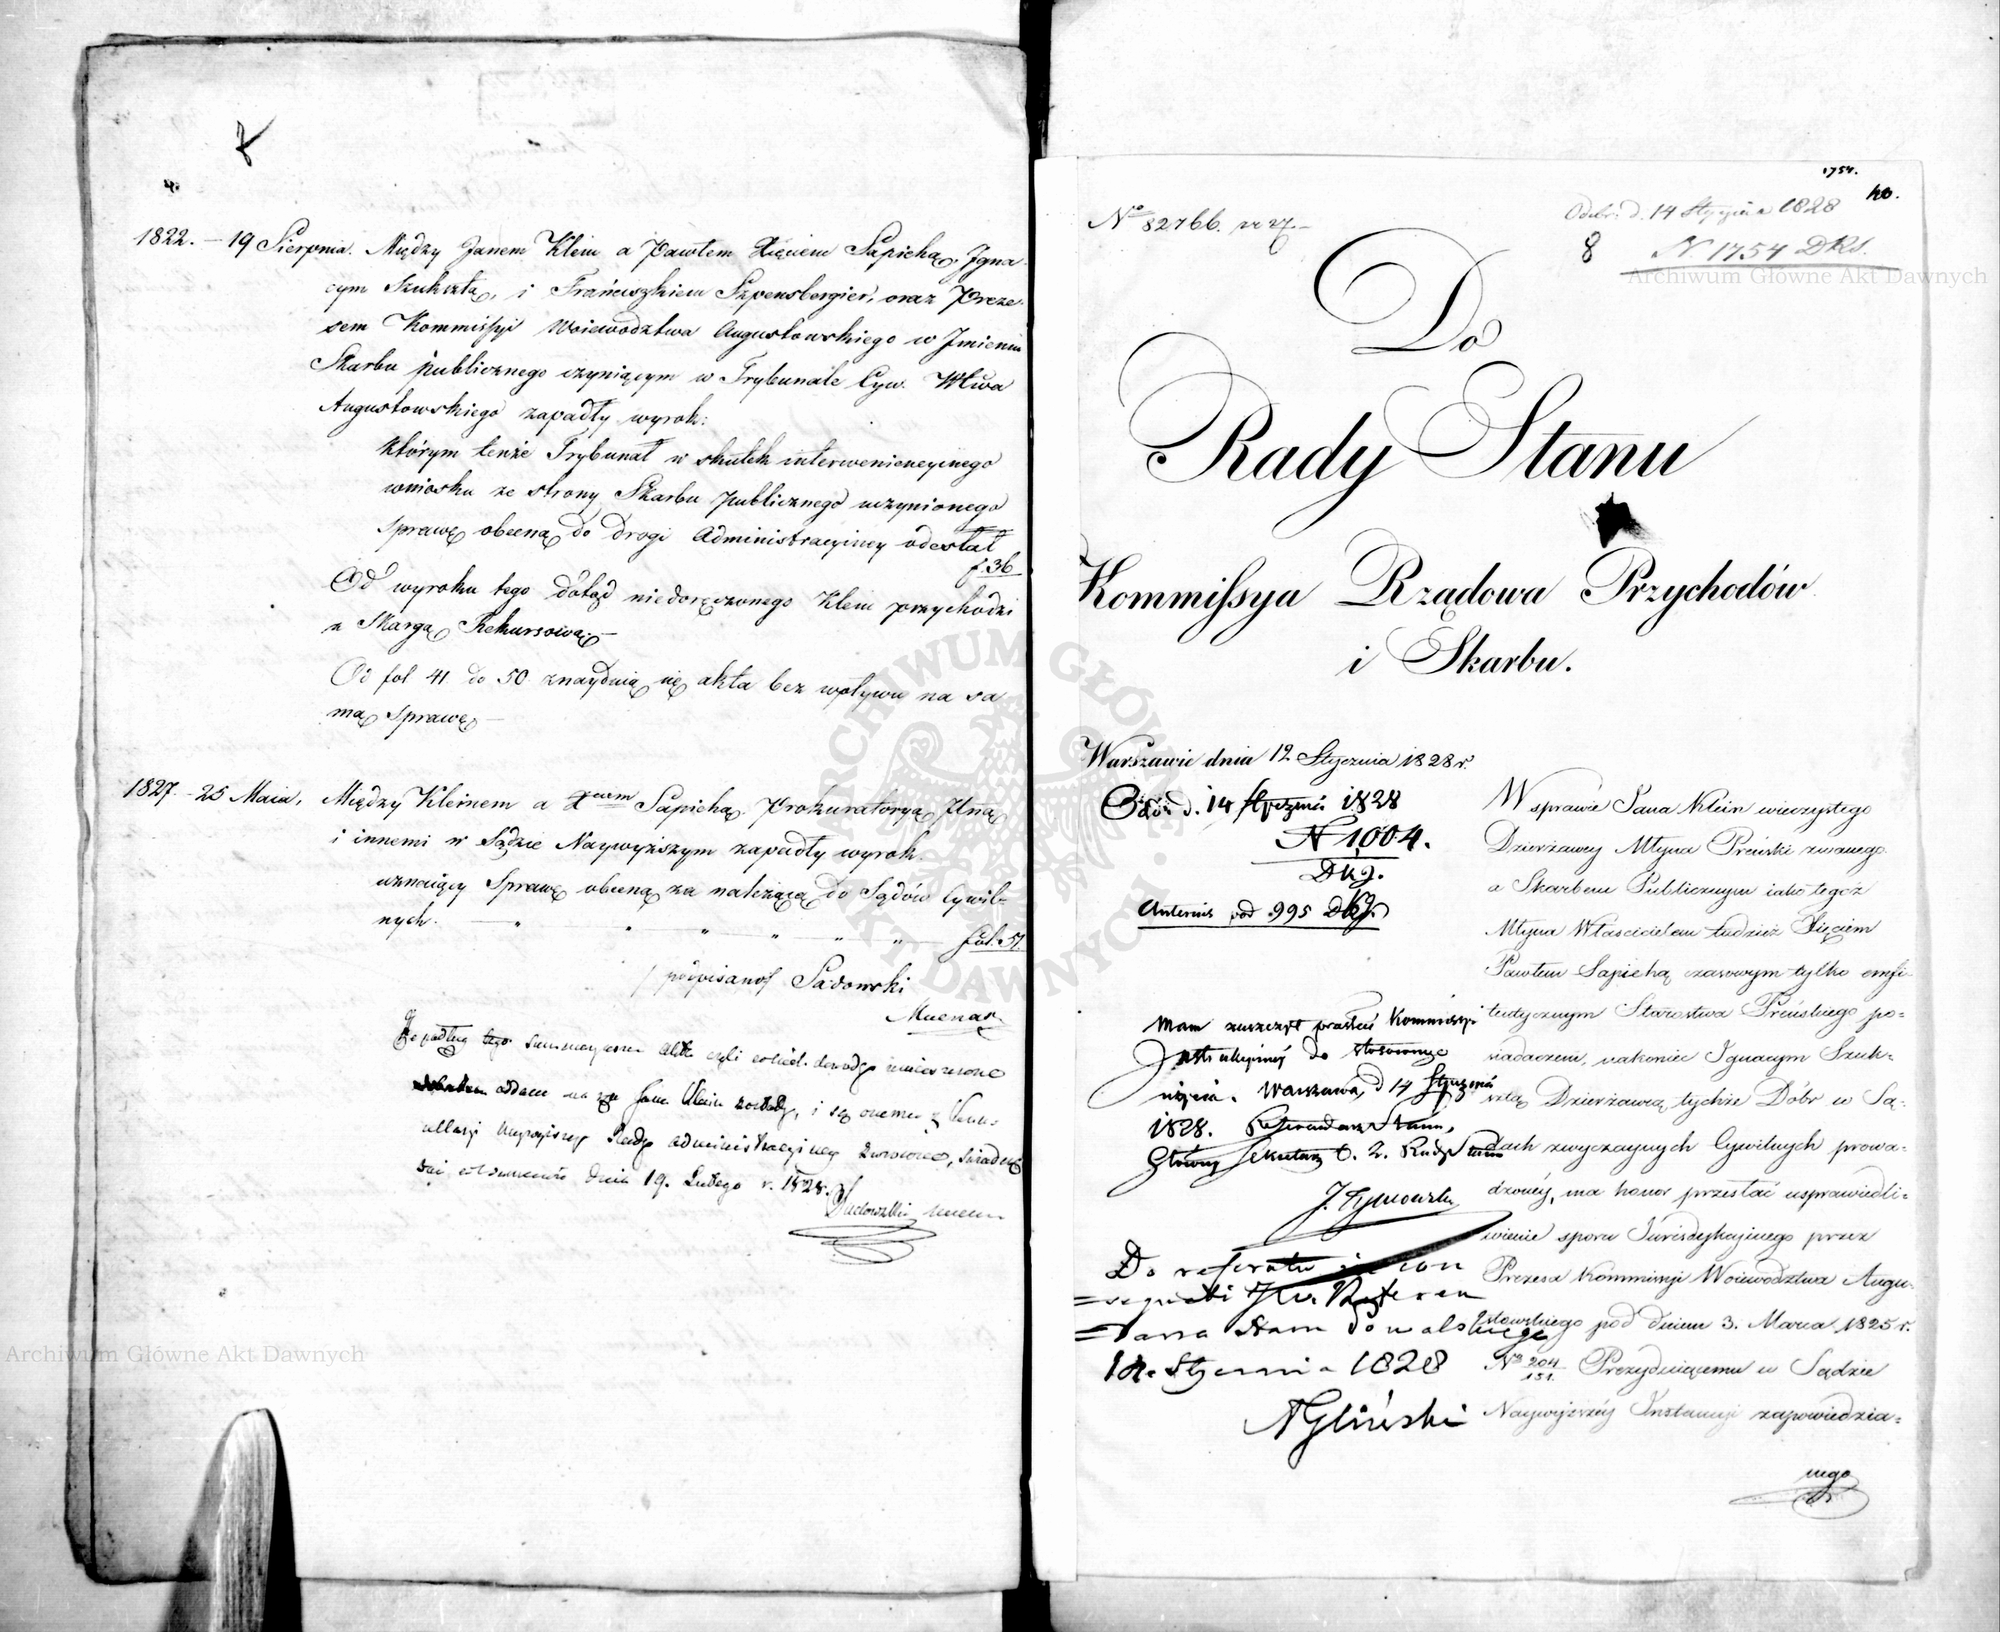 1822. – 19 Sierpnia. Między Janem Klein a Pawłem Xięciem Sapiehą, Igna-
cym Szuksztą, i Franciszkiem Szpensbergier, oraz Preze-
sem Kommissyi Woiewodztwa Augustowskiego w Imieniu
Skarbu publicznego czyniącym w Trybunale Cyw. Wtwa
Augustowskiego zapadły wyrok:
którym tenże Trybunał w skutek interweniencyinego
wniosku ze strony Skarbu publicznego uczynionego
Sprawę obecną do drogi Administracyiney odesłał
f. 36
Od wyroku tego dotąd niedoręczonego Klein przychodzi
z Skargą Rekursową –
Od fol 41 do 50 znayduią się akta bez wpływu na sa
mą sprawę –
1827. – 25 Maia, Między Kleinem a Xciem Sapiehą, Prokuratoryą Jlną
i innemi w Sądzie Naywyższym zapadły wyrok
uznaiący Sprawę obecną za należącą do Sądów Cywil-
nych. fol. 51.
/podpisano/ Sadowski
Mecenas
tego Summaryusza akta
oddane Jana Klein zostały, i są onemu z
Rady administracyiney zwrócone,
dnia 19. Lutego r. 1828.
1754.
40.
No 82766. 27.
Odebr. d. 14 Stycznia 1828
8 N. 1754 DKS.
Do
Rady Stanu
Kommissya Rządowa Przychodów
i Skarbu.
Warszawie dnia 12 Stycznia 1828 r.
d. 14 Stycznia 1828
N 1004.
DKJ.
Anterius pod 995 DKJ.
Mam zaszczyt przesłać Kommissyi
Instrukcyinéj do stosownego
użycia. Warszawa, d 14 Stycznia
1828. Referendarz Stanu,
Główny Sekretarz Rady Stanu
Do referatu
Stanu Kowalskiego
Stycznia 1828
AGliński
W sprawie Jana Klein wieczystego
Dzierżawcy Młyna Preński zwanego
a Skarbem Publicznym iako tegoż
Młyna Właścicielem tudzież Xięciem
Pawłem Sapiehą czasowym tylko emfi-
teutycznym Starostwa Preńskiego po-
siadaczem, nakoniec Ignacym Szuk-
sztą Dzierżawcą tychże Dóbr w Są-
dach zwyczaynych Cywilnych prowa-
dzonéy, ma honor przesłać usprawiedli-
wienie sporu Jurisdykcyinego przez
Prezesa Kommissyi Woiewództwa Augu-
stowskiego pod dniem 3. Marca 1825 r.
No 204/151. Prezyduiącemu w Sądzie
Naywyższéy Instancyi zapowiedzia-
nego
Archiwum Główne Akt Dawnych
Archiwum Główne Akt Dawnych
ARCHIWUM GŁÓWNE AKT DAWNYCH